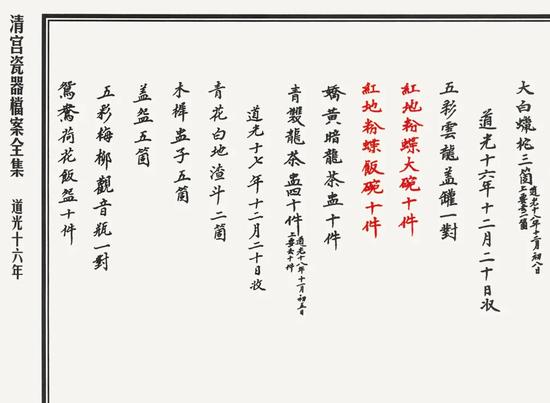 大白蠟花三箇道光十八年十二月初八日上要去二箇
道光十六年十二月二十日收
五彩雲龍盖罐一對
紅地粉蝶大碗十件
紅地粉蝶飯碗十件
嬌黃暗龍茶盅十件
青雙龍茶盅四十件道光十八年十一月初五日上要去十件
道光十七年十二月二十日收
青花白地渣斗二箇
木樨盅子五箇
盖盌五箇
五彩梅柳觀音瓶一對
鴛鴦荷花飯盌十件
清宫瓷器檔案全集 道光十六年